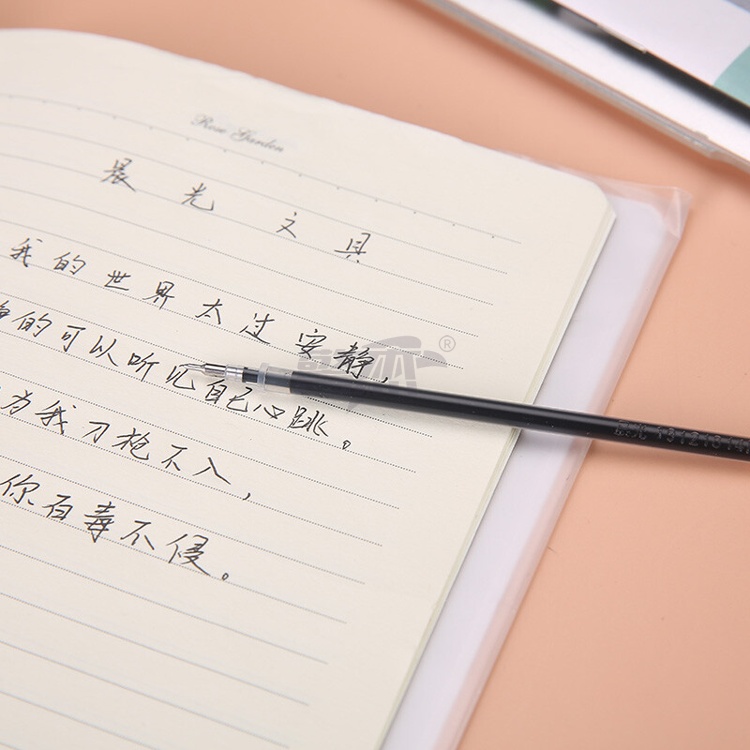 Rose Garden
晨光文具
我的世界太过安静,
的可以听见自己心跳。
为我刀枪不入,
你百毒不侵。
晨光
®